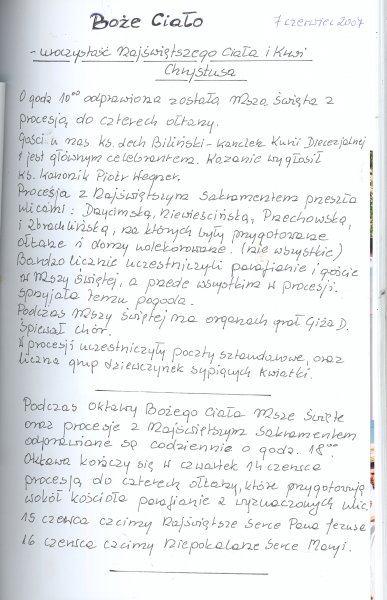 Boże Ciało 7 czerwiec 2007
- uroczystość Najświętszego Ciała i Krwi
Chrystusa
O godz 10⁰⁰ odprawiona została Msza Święta z
procesją do czterech ołtarzy.
Gości u nas ks. Lech Biliński - kanclerz Kurii Diecezjalnej
i jest głównym celebransem. Kazanie wygłosił
ks. Kanonik Piotr Wegner.
Procesja z Najświętszym Sakramentem przeszła
ulicami: Dąycimską, Niewieścińską, Przechowską,
i Zbrachlińską, na których były przygotowane
ołtarze i domy udekorowane. (nie wszystkie)
Bardzo licznie uczestniczyli parafianie i goście
w Mszy Świętej, a przede wszystkim w procesji.
Sprzyjała temu pogoda.
Podczas Mszy Świętej na organach grał Giża D.
Śpiewał chór.
W procesji uczestniczyły poczty sztandarowe, oraz
liczna grup dziewczynek sypiących kwiatki.
Podczas Oktawy Bożego Ciała Msze Święte
oraz procesje z Najświętszym Sakramentem
odprawiane są codziennie o godz. 18⁰⁰.
Oktawa kończy się w czwartek 14 czerwca
procesją do czterech ołtarzy, które przygotowują
wokół kościoła parafianie z wyznaczonych ulic.
15 czerwca czcimy Najświętsze Serce Pana Jezusa
16 czerwca czcimy Niepokalane Serce Maryi.